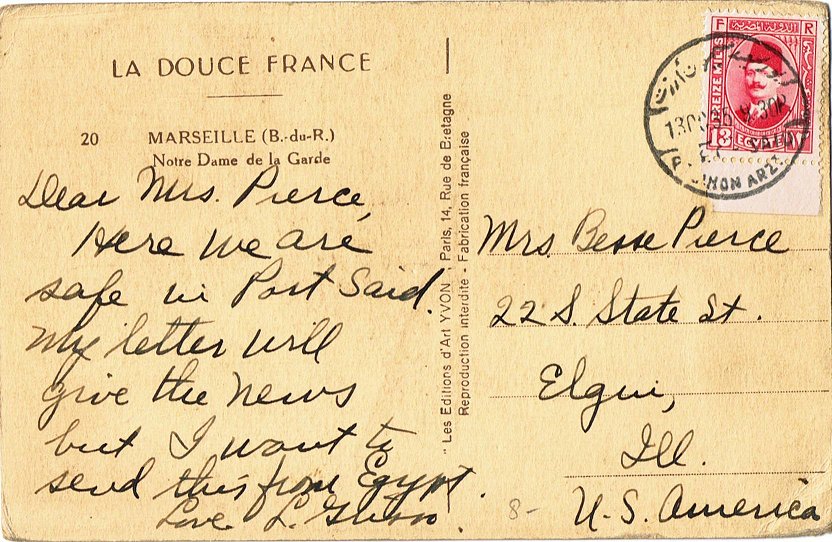 LA DOUCE FRANCE
20 MARSEILLE (B.-du-R.)
Notre Dame de la Garde
Dear Mrs. Pierce,
Here we are
safe in Port Said.
My letter will
give the news
but I want to
send this from Egypt.
Love L.
"Les Editions d'Art YVON", Paris, 14, Rue de Bretagne
Reproduction interdite - Fabrication française
F R
TREIZE MILLS
13
EGYPTE
13
8-30P
SIMON ARZT
Mrs Besse Pierce
22 S. State St.
Elgin,
Ill.
U.S. America
8-